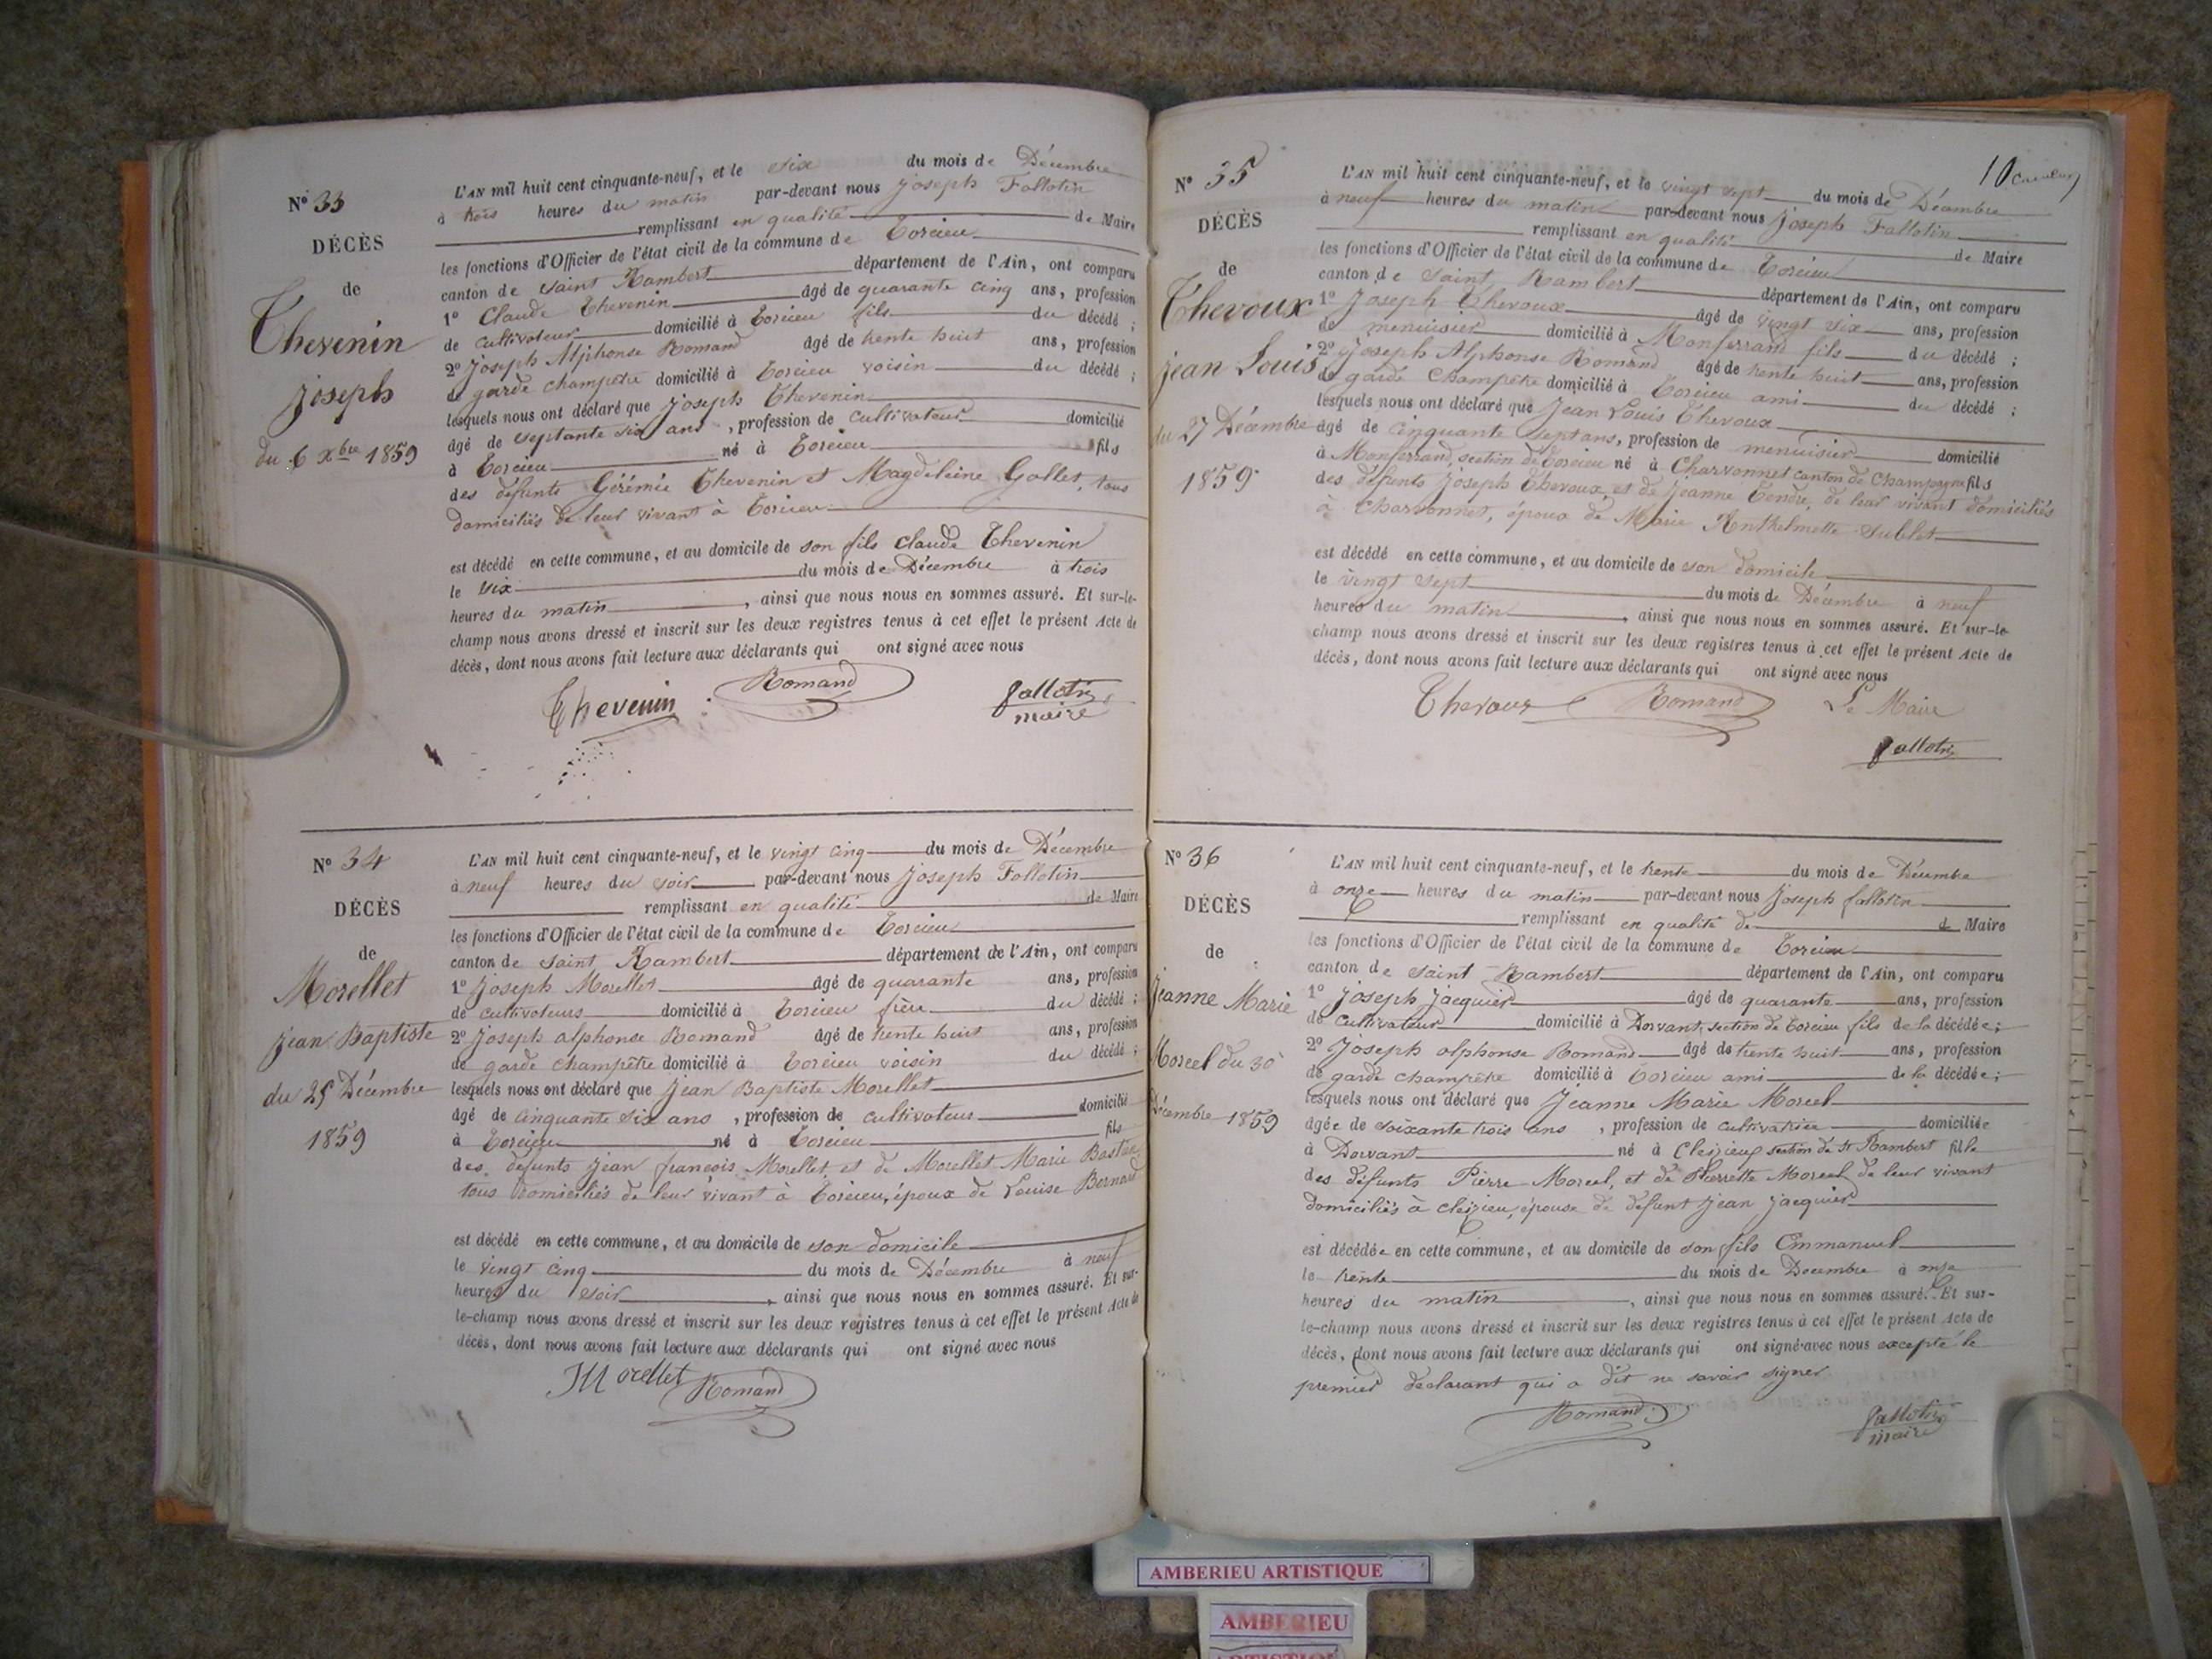 N° 33
DÉCÈS
de
Thevenin
joseph
du 6 Xbre 1859
L'AN mil huit cent cinquante-neuf, et le six du mois de Décembre
à trois heures du matin par-devant nous Joseph Fallotin
remplissant en qualité de Maire
les fonctions d'Officier de l'état civil de la commune de Torcieu
canton de Saint Rambert département de l'Ain, ont comparu
1° Claude Thevenin âgé de quarante cinq ans, profession
de cultivateur domicilié à Torcieu fils du décédé ;
2° Joseph Alphonse Romand âgé de trente huit ans, profession
de garde champêtre domicilié à Torcieu voisin du décédé ;
lesquels nous ont déclaré que Joseph Thevenin
âgé de septante six ans, profession de cultivateur domicilié
à Torcieu né à Torcieu fils
des défunts Gérémie Thevenin et Magdeleine Gallet, tous
domiciliés de leur vivant à Torcieu
est décédé en cette commune, et au domicile de son fils Claude Thevenin
le six du mois de Décembre à trois
heures du matin, ainsi que nous nous en sommes assuré. Et sur-le-
champ nous avons dressé et inscrit sur les deux registres tenus à cet effet le présent Acte de
décès, dont nous avons fait lecture aux déclarants qui ont signé avec nous
Thevenin Romand fallotin
maire
N° 34
DÉCÈS
de
Morellet
Jean Baptiste
du 25 Décembre
1859
L'AN mil huit cent cinquante-neuf, et le vingt cinq du mois de Décembre
à neuf heures du soir par-devant nous Joseph Fallotin
remplissant en qualité de Maire
les fonctions d'Officier de l'état civil de la commune de Torcieu
canton de Saint Rambert département de l'Ain, ont comparu
1° Joseph Morellet âgé de quarante ans, profession
de cultivateurs domicilié à Torcieu frère du décédé ;
2° Joseph alphonse Romand âgé de trente huit ans, profession
de garde champêtre domicilié à Torcieu voisin du décédé ;
lesquels nous ont déclaré que Jean Baptiste Morellet
âgé de cinquante six ans, profession de cultivateur domicilié
à Torcieu né à Torcieu fils
des défunts Jean françois Morellet et de Morellet Marie
tous domiciliés de leur vivant à Torcieu, époux de Louise Bernard
est décédé en cette commune, et au domicile de son domicile
le vingt cinq du mois de Décembre à neuf
heures du soir, ainsi que nous nous en sommes assuré. Et sur-
le-champ nous avons dressé et inscrit sur les deux registres tenus à cet effet le présent Acte de
décès, dont nous avons fait lecture aux déclarants qui ont signé avec nous
Morellet Romand
10
N° 35
DÉCÈS
de
Thevoux
Jean Louis
du 27 Décembre
1859
L'AN mil huit cent cinquante-neuf, et le vingt sept du mois de Décembre
à neuf heures du matin par-devant nous Joseph Fallotin
remplissant en qualité de Maire
les fonctions d'Officier de l'état civil de la commune de Torcieu
canton de Saint Rambert département de l'Ain, ont comparu
1° Joseph Thevoux âgé de vingt six ans, profession
de menuisier domicilié à Monferrand fils du décédé ;
2° Joseph Alphonse Romand âgé de trente huit ans, profession
de garde Champêtre domicilié à Torcieu ami du décédé ;
lesquels nous ont déclaré que Jean Louis Thevoux
âgé de cinquante sept ans, profession de menuisier domicilié
à Monferrand, section de Torcieu né à Charvonnet canton de Champagne fils
des défunts Joseph Thevoux, et de Jeanne Tendre, de leur vivant domiciliés
à Charvonnet, époux de Marie Anthelmette Sublet
est décédé en cette commune, et au domicile de son domicile
le vingt sept du mois de Décembre à neuf
heures du matin, ainsi que nous nous en sommes assuré. Et sur-le-
champ nous avons dressé et inscrit sur les deux registres tenus à cet effet le présent Acte de
décès, dont nous avons fait lecture aux déclarants qui ont signé avec nous
Thevoux Romand Le Maire
fallotin
N° 36
DÉCÈS
de
Jeanne Marie
Morcel du 30
Décembre 1859
L'AN mil huit cent cinquante-neuf, et le trente du mois de Décembre
à onze heures du matin par-devant nous Joseph fallotin
remplissant en qualité de de Maire
les fonctions d'Officier de l'état civil de la commune de Torcieu
canton de Saint Rambert département de l'Ain, ont comparu
1° Joseph Jacquier âgé de quarante ans, profession
de cultivateur domicilié à Dorvant, section de Torcieu fils de la décédée ;
2° Joseph alphonse Romand âgé de trente huit ans, profession
de garde champêtre domicilié à Torcieu ami de la décédée ;
lesquels nous ont déclaré que Jeanne Marie Morcel
âgée de soixante trois ans, profession de cultivatrice domiciliée
à Dorvant né à Cleizieu section de St Rambert fille
des défunts Pierre Morcel, et de Pierrette Morcel de leur vivant
domiciliés à cleizieu, épouse de défunt Jean Jacquier
est décédée en cette commune, et au domicile de son fils Emmanuel
le trente du mois de Decembre à onze
heures du matin, ainsi que nous nous en sommes assuré. Et sur-
le-champ nous avons dressé et inscrit sur les deux registres tenus à cet effet le présent Acte de
décès, dont nous avons fait lecture aux déclarants qui ont signé avec nous excepté le
premier déclarant qui a dit ne savoir signer
Romand fallotin
maire
AMBERIEU ARTISTIQUE
AMBERIEU
ARTISTIQUE